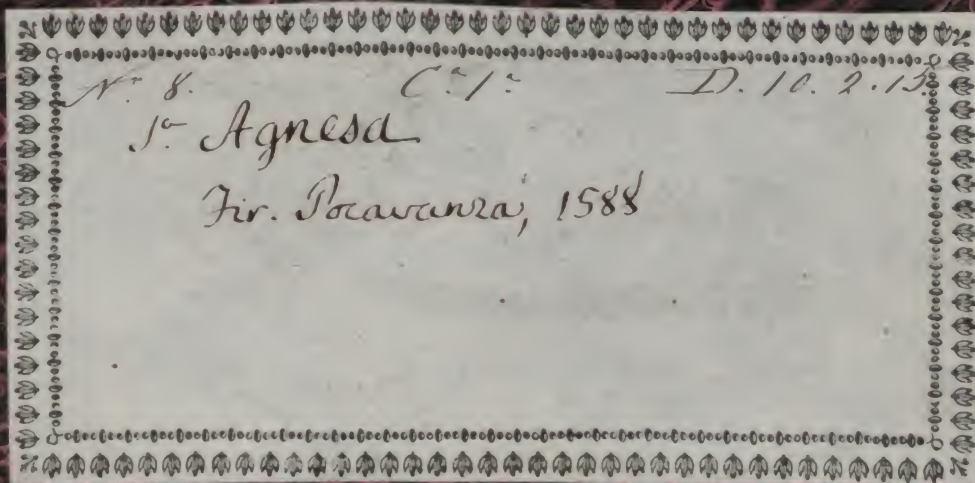 N.º 8. C.ª 1.ª D. 10. 2. 15.
S.ª Agnesa
Fir. Pocavanza, 1588